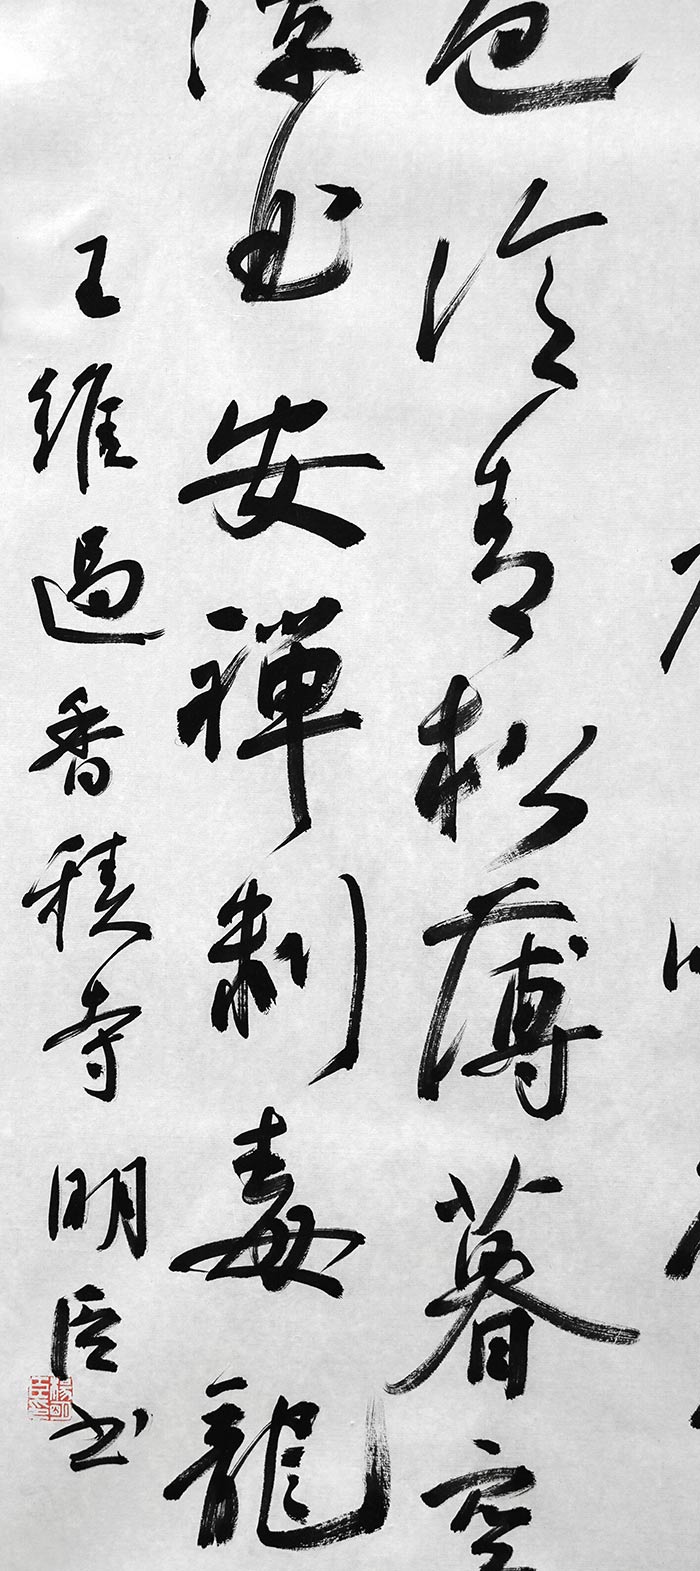 色冷青松薄暮空
潭曲安禪制毒龍
王維過香積寺 明臣书